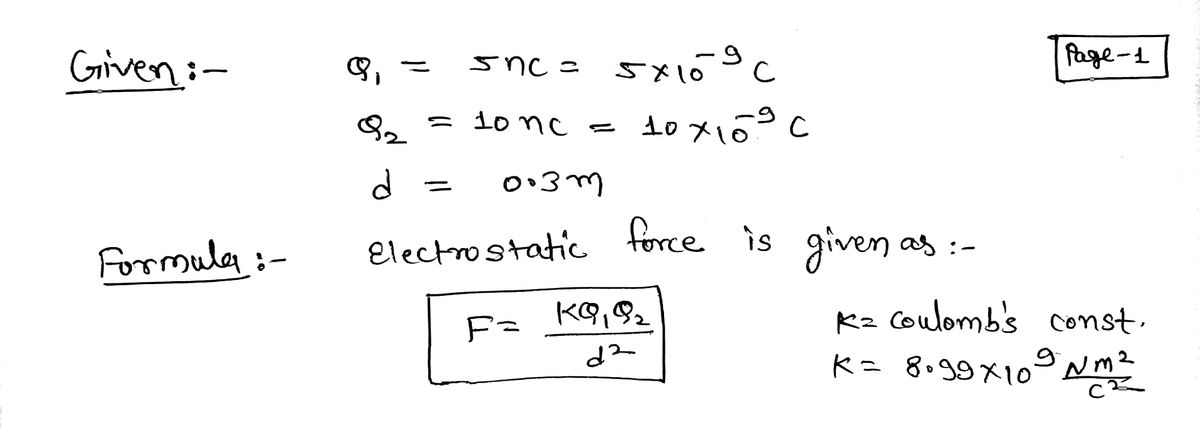 Given :-
Q₁ = 5nc = 5×10⁻⁹ C
Page-1
Q₂ = 10nc = 10×10⁻⁹ C
d = 0.3m
Formula :-
Electrostatic force is given as :-
F = KQ₁Q₂/d²
K= Coulomb's const.
K= 8.99×10⁹ Nm²/C²